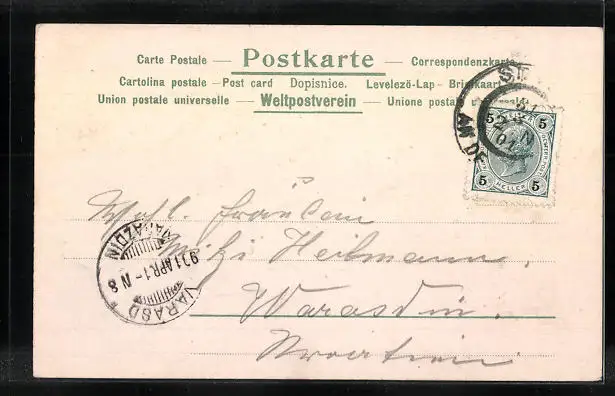 Carte Postale — Postkarte — Correspondenzkarte
Cartolina postale — Post card Dopisnice. Levelező-Lap — Briefkaart
Union postale universelle — Weltpostverein — Unione postale
5 5
5 HELLER 5
Wohl. Fräulein
Mitzi Heilmann,
Warasdin.
Kroatien
VARAŽDIN
901 APR. 1 - N 8
VARASD